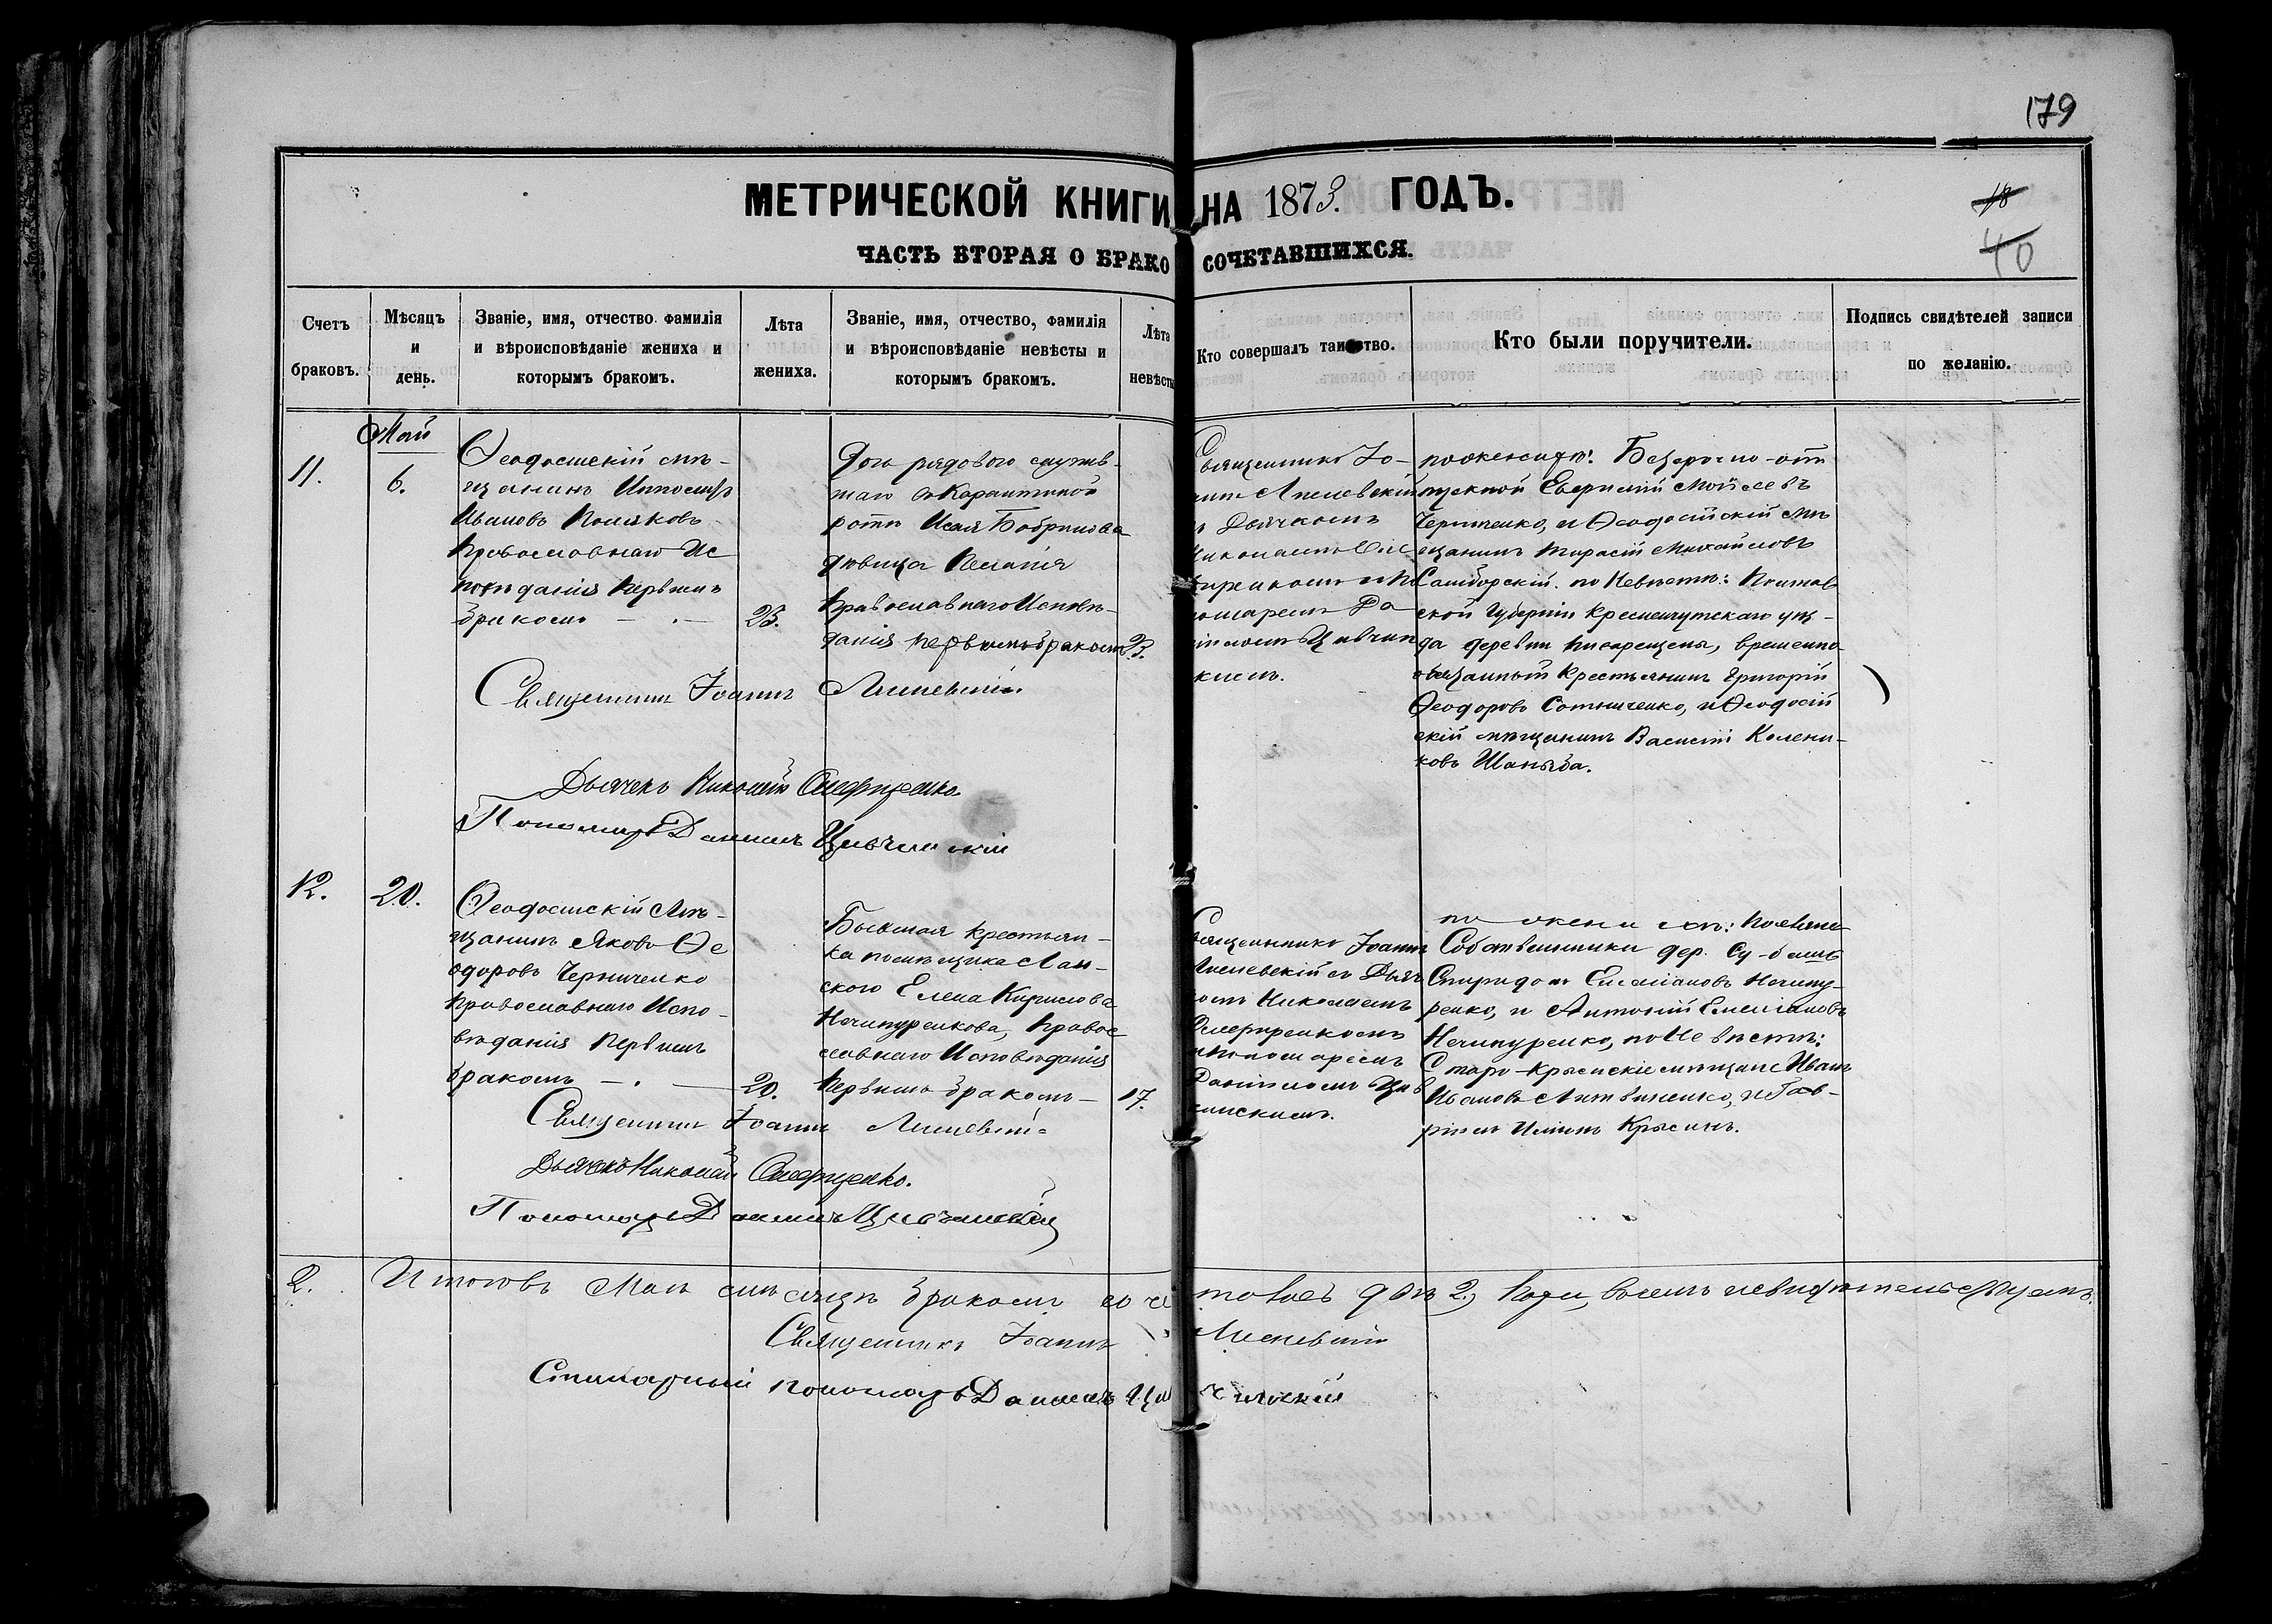 179
МЕТРИЧЕСКОЙ КНИГИ НА 1873. ГОДЪ.
18
40
ЧАСТЬ ВТОРАЯ О БРАКОСОЧЕТАВШИХСЯ.
Счетъ браковъ.
Мѣсяцъ и день.
Званіе, имя, отчество фамилія
и вѣроисповѣданіе жениха и
которымъ бракомъ.
Лѣта
жениха.
Званіе, имя, отчество, фамилія
и вѣроисповѣданіе невѣсты и
которымъ бракомъ.
Лѣта
невѣсты
Кто совершалъ таинство.
Кто были поручители.
Подпись свидѣтелей записи
по желанію.
Май
11.
6.
Ѳеодосійскій мѣ-
щанинъ
Ивановъ Поляковъ
православнаго Ис
повѣданія первымъ
бракомъ
23.
Дочь рядового служив-
шаго въ Карантинной
ротѣ Исая Бобринова
дѣвица Пелагія
Православнаго Исповѣ-
данія первымъ бракомъ
23.
Священникъ Іо-
аннъ Лисневскій
съ Дьячкомъ
Николаемъ
номаремъ Да
ніиломъ Цивчин
скимъ.
по женихѣ: Безсрочно-от
пускной Евгений Мойсеевъ
Черниченко, и Ѳеодосійскій мѣ
щанинъ Тарасій Михайловъ
Самборскій. по Невѣстѣ: Полтав
ской Губерніи Кременчугскаго уѣз-
да деревни, временно
обязанный Крестьянинъ Григорій
Ѳеодоровъ Сотниченко, и Ѳеодосій
скій мѣщанинъ Василій Колени-
ковъ
Священникъ Іоаннъ Лисневскій
Дьячекъ Николай
Пономарь Даніилъ Цивчинскій
12.
20.
Ѳеодосійскій Мѣ-
щанинъ Яковъ Ѳе
одоровъ Черниченко
православнаго Испо-
вѣданія первымъ
бракомъ
20.
Бывшая крестьян-
ка помѣщика Лан-
ского Елена Кирилова
Нечипуренкова, Правос
славнаго Исповѣданія
первымъ бракомъ
17.
Священникъ Іоаннъ
Лисневскій съ Дьяч
комъ Николаемъ
пономаремъ
Даніиломъ Цив
чинскимъ.
по женихѣ: Поселяне
Собственники дер. Су-башъ
Спиридонъ Емельяновъ Нечипу-
ренко, и Антоній Емельяновъ
Нечипуренко, по Невѣстѣ:
Старо-Крымскіе мѣщане Иванъ
Ивановъ Литвиненко, и Гав-
ріилъ Ильинъ Крысинъ.
Священникъ Іоаннъ Лисневскій
Дьячекъ Николай
Пономарь Даніилъ Цивчинскій
2.
Итого въ Маѣ мѣсяцѣ бракомъ сочетовалъ двѣ 2,
Священникъ Іоаннъ Лисневскій
пономарь Даніилъ Цивчинскій